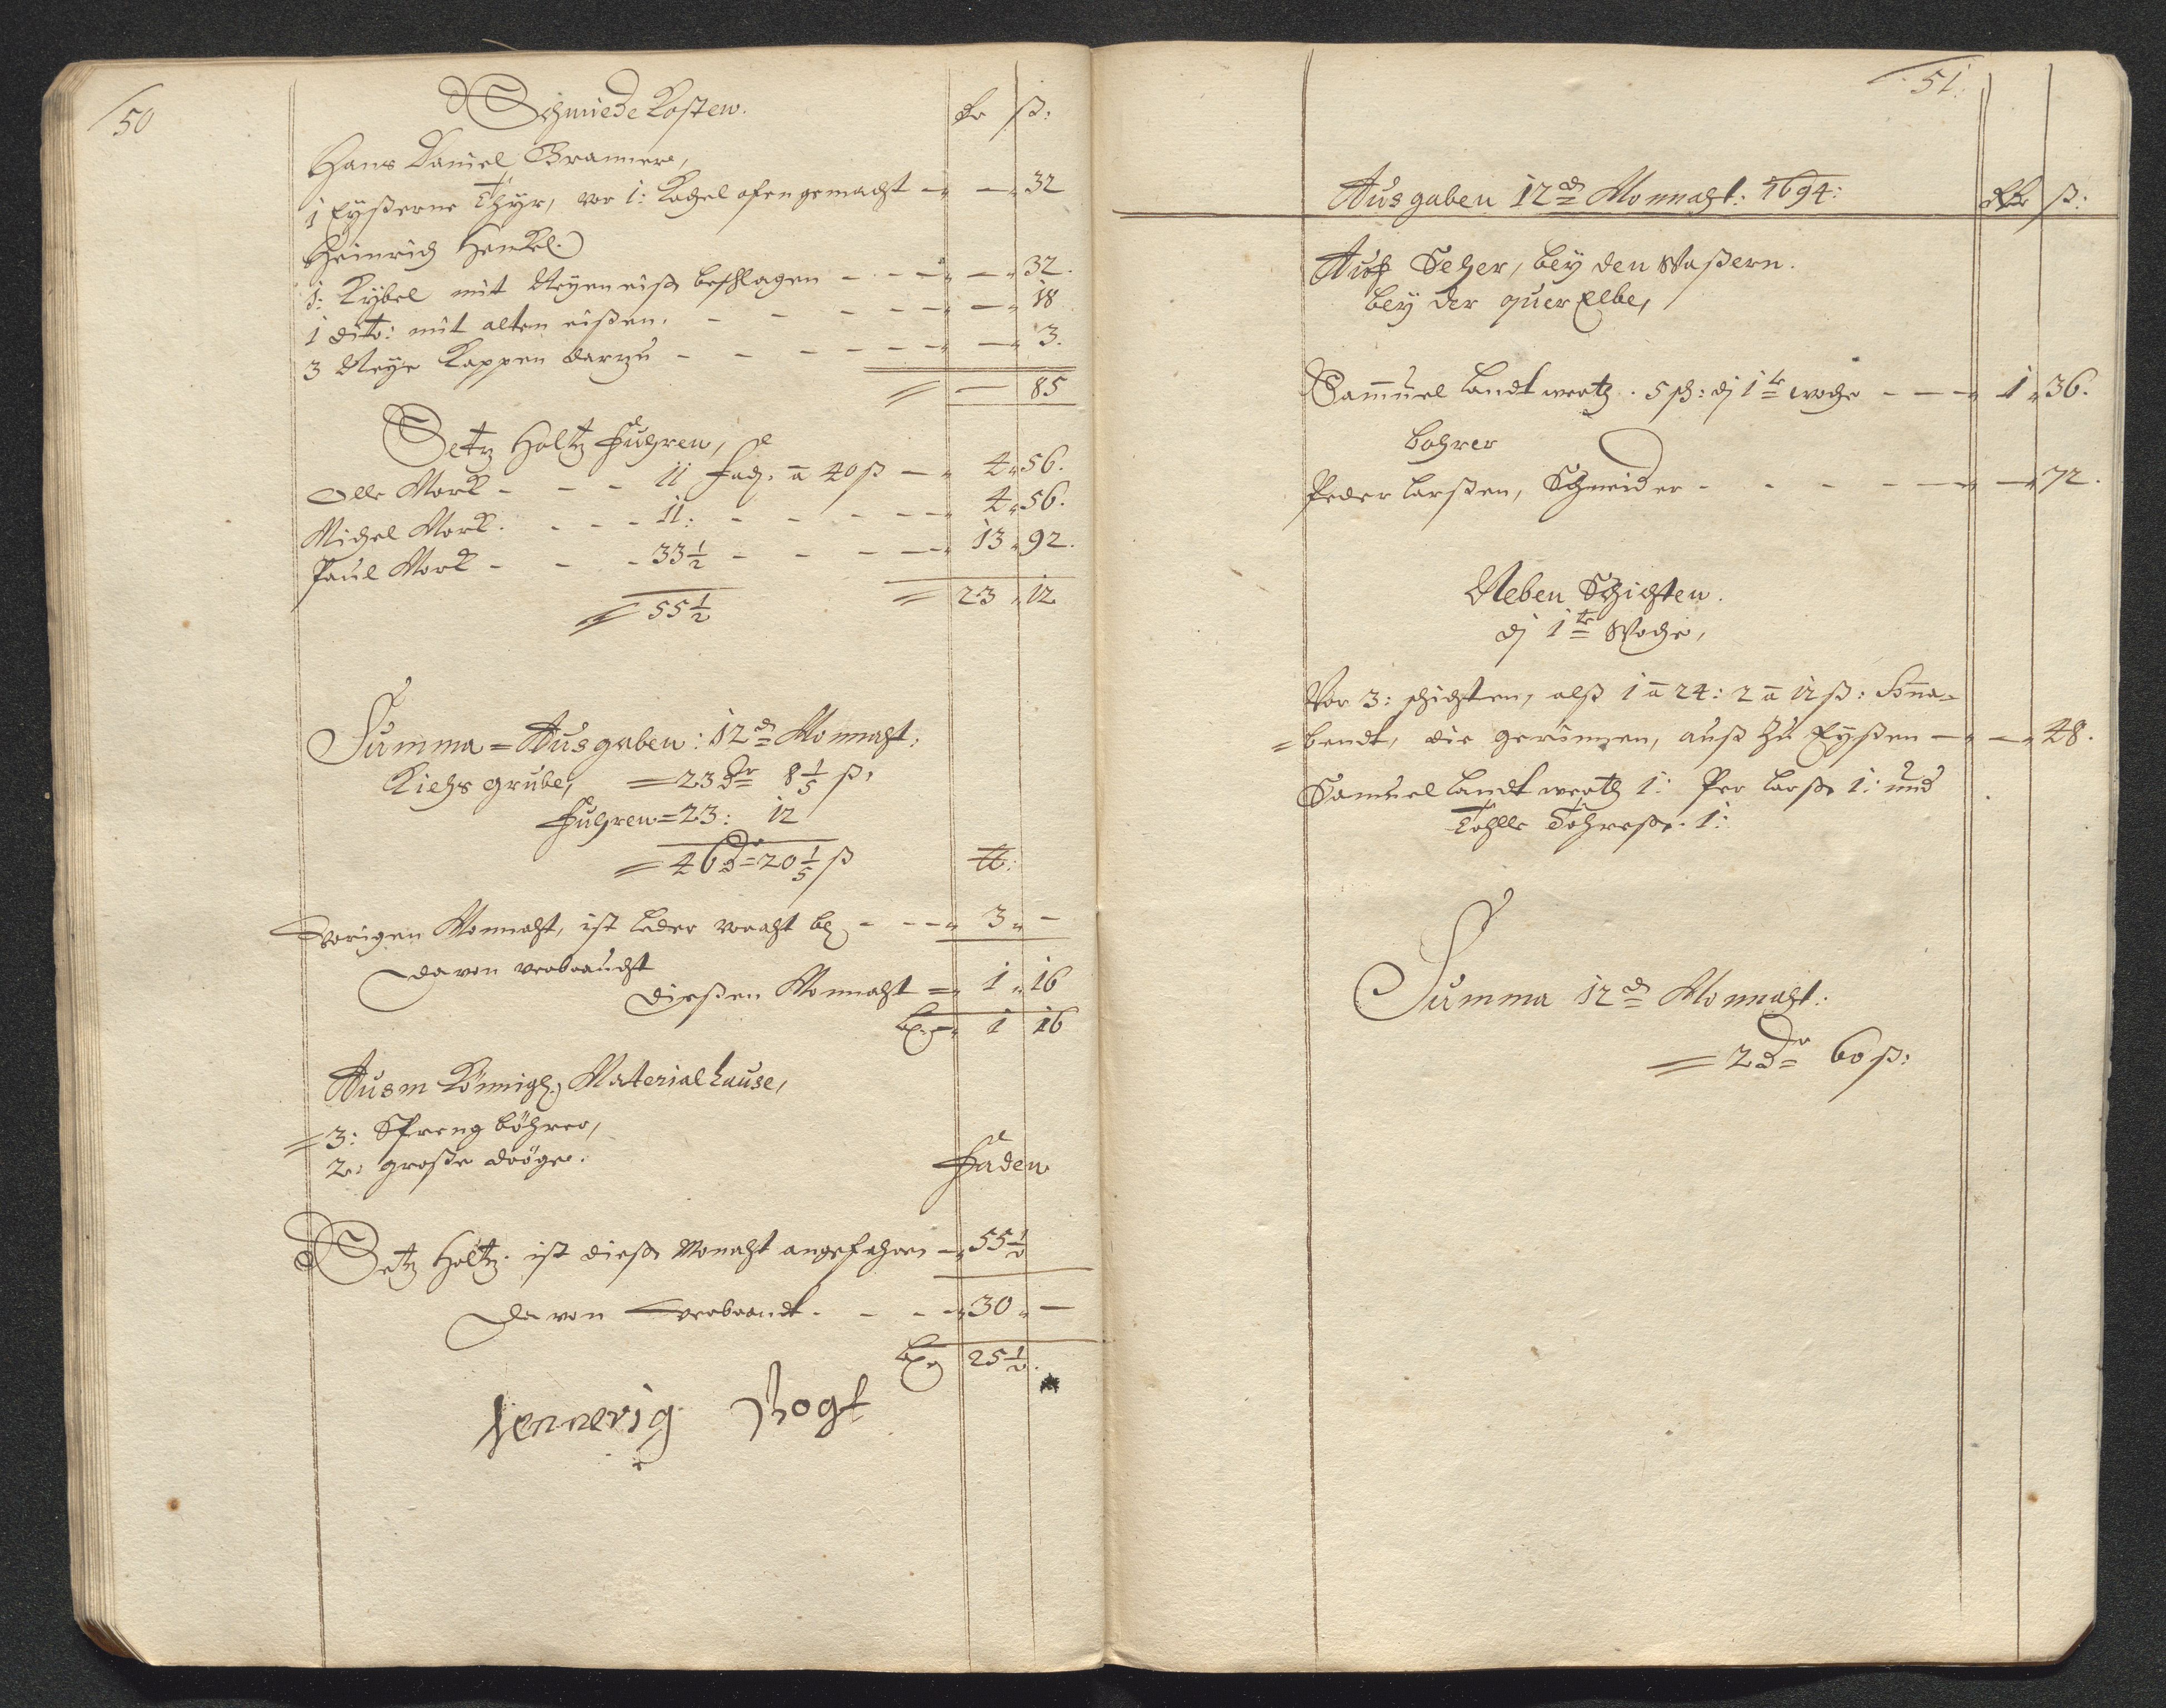 50
Schmiede Kosten.
Rr ß:
Hans Daniel Branner,
1 Eyßerne Thyr, vor 1: Kachel ofen gemacht - - 32
Heinrich Henkel.
1: Kybel mit Neyen eiß beschlagen - - - - 32.
1 dito: mit alten eißen. - - - - - - 18
3 Neye Kappen darzu - - - - - - 3.
= - 85
Setz Holtz Fuhren,
Olle Mork - - - 11 Fad. a 40 ß - 4 56.
Michel Mork. - - - 11: - - - - 4 56.
Paul Mork - - - 33 1/2 - - - - 13 92.
= 55 1/2 = 23 12
Summa = Ausgaben: 12d Monnaht:
Kiehs grube, = 23 Dr 8 1/5 ß,
Fuhren = 23: 12
= 46 D = 20 1/5 ß
tt:
Vorigen Monnaht, ist Leder voraht bl - - - 3 -
Davon verbraucht
Dießen Monnaht = 1 16
bl. = 1 16
Ausm Königl. Materialhause,
= 3: Spreng böhrer,
2: große
Faden
Setz Holtz. ist dieße Monaht angefahren - 55 1/2
Da von verbrandt. - - - 30 -
bl. 25 1/2.
Hennerig Vogt
51:
Ausgaben 12d Monnaht: 1694:
Rr ß:
Auf Seher, bey den Waßern.
bey der quer Elbe,
Sammuel Landtwertz. 5 sch: dj 1te woche - - - 1 36.
bohrer
Peder Larßen, Schneider - - - - - - 72.
Neben Schichten.
dj 1te Woche,
Vor 3: schichten, alß 1 a 24: 2 a 12 ß: Sonna=
=bendt, die gerinnen, auß zu Eyßen - - - 48.
Samuel Landtwertz 1: Per Larße 1: und
Tholle 1:
Summa 12d Monnaht:
= 2 Dr 60 ß: